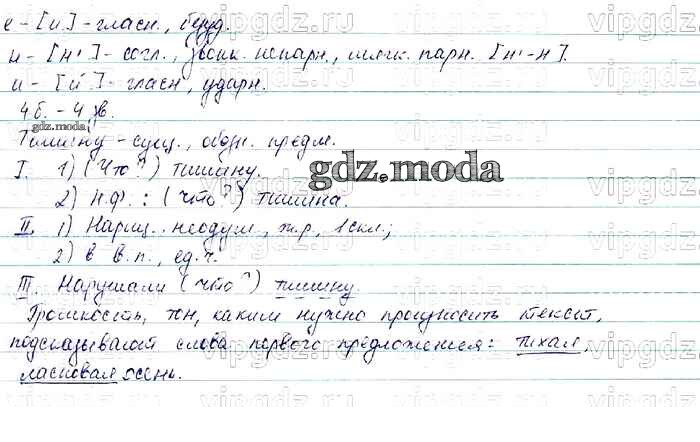 е - [и] - гласн., безуд.
н - [н'] - согл., звонк. непарн., мягк. парн. [н'-н].
и - [и́] - гласн., ударн.
4 б. - 4 зв.
gdz.moda
Тишину - сущ., обозн. предм.
I. 1) (Что?) тишину.
gdz.moda
2) Н.ф.: (что?) тишина.
II. 1) Нариц. неодуш., ж.р., 1 скл.;
2) в В.п., ед.ч.
III. Нарушали (что?) тишину.
Громкость, тон, каким нужно произносить текст,
подсказывают слова первого предложения: тихая,
ласковая осень.